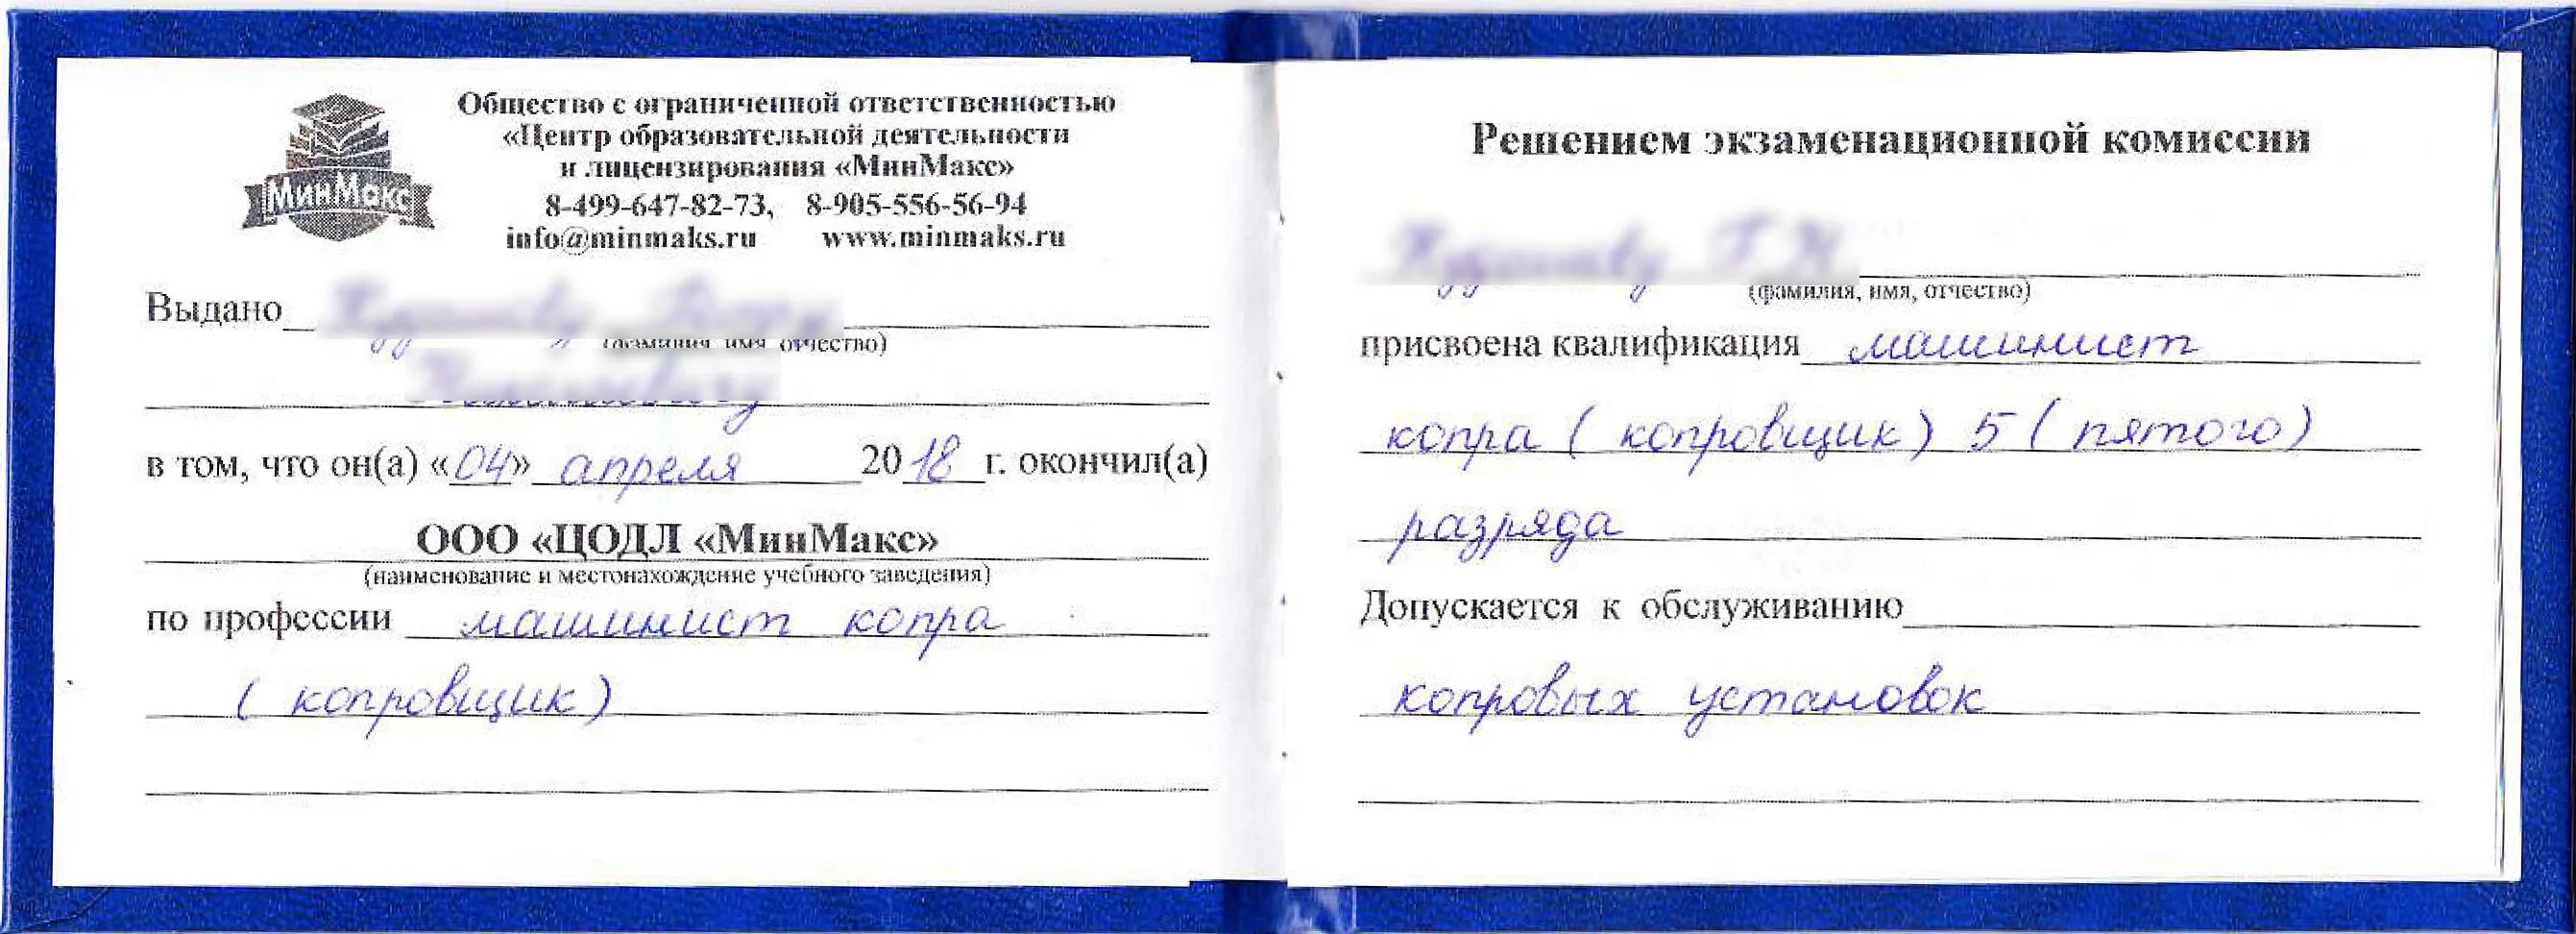 Общество с ограниченной ответственностью
«Центр образовательной деятельности
и лицензирования «МинМакс»
МинМакс
8-499-647-82-73, 8-905-556-56-94
info@minmaks.ru www.minmaks.ru
Выдано
(фамилия, имя, отчество)
в том, что он(а) «04» апреля 2018 г. окончил(а)
ООО «ЦОДЛ «МинМакс»
(наименование и местонахождение учебного заведения)
по профессии машинист копра
(копровщик)
Решением экзаменационной комиссии
(фамилия, имя, отчество)
присвоена квалификация машинист
копра (копровщик) 5 (пятого)
разряда
Допускается к обслуживанию
копровых установок